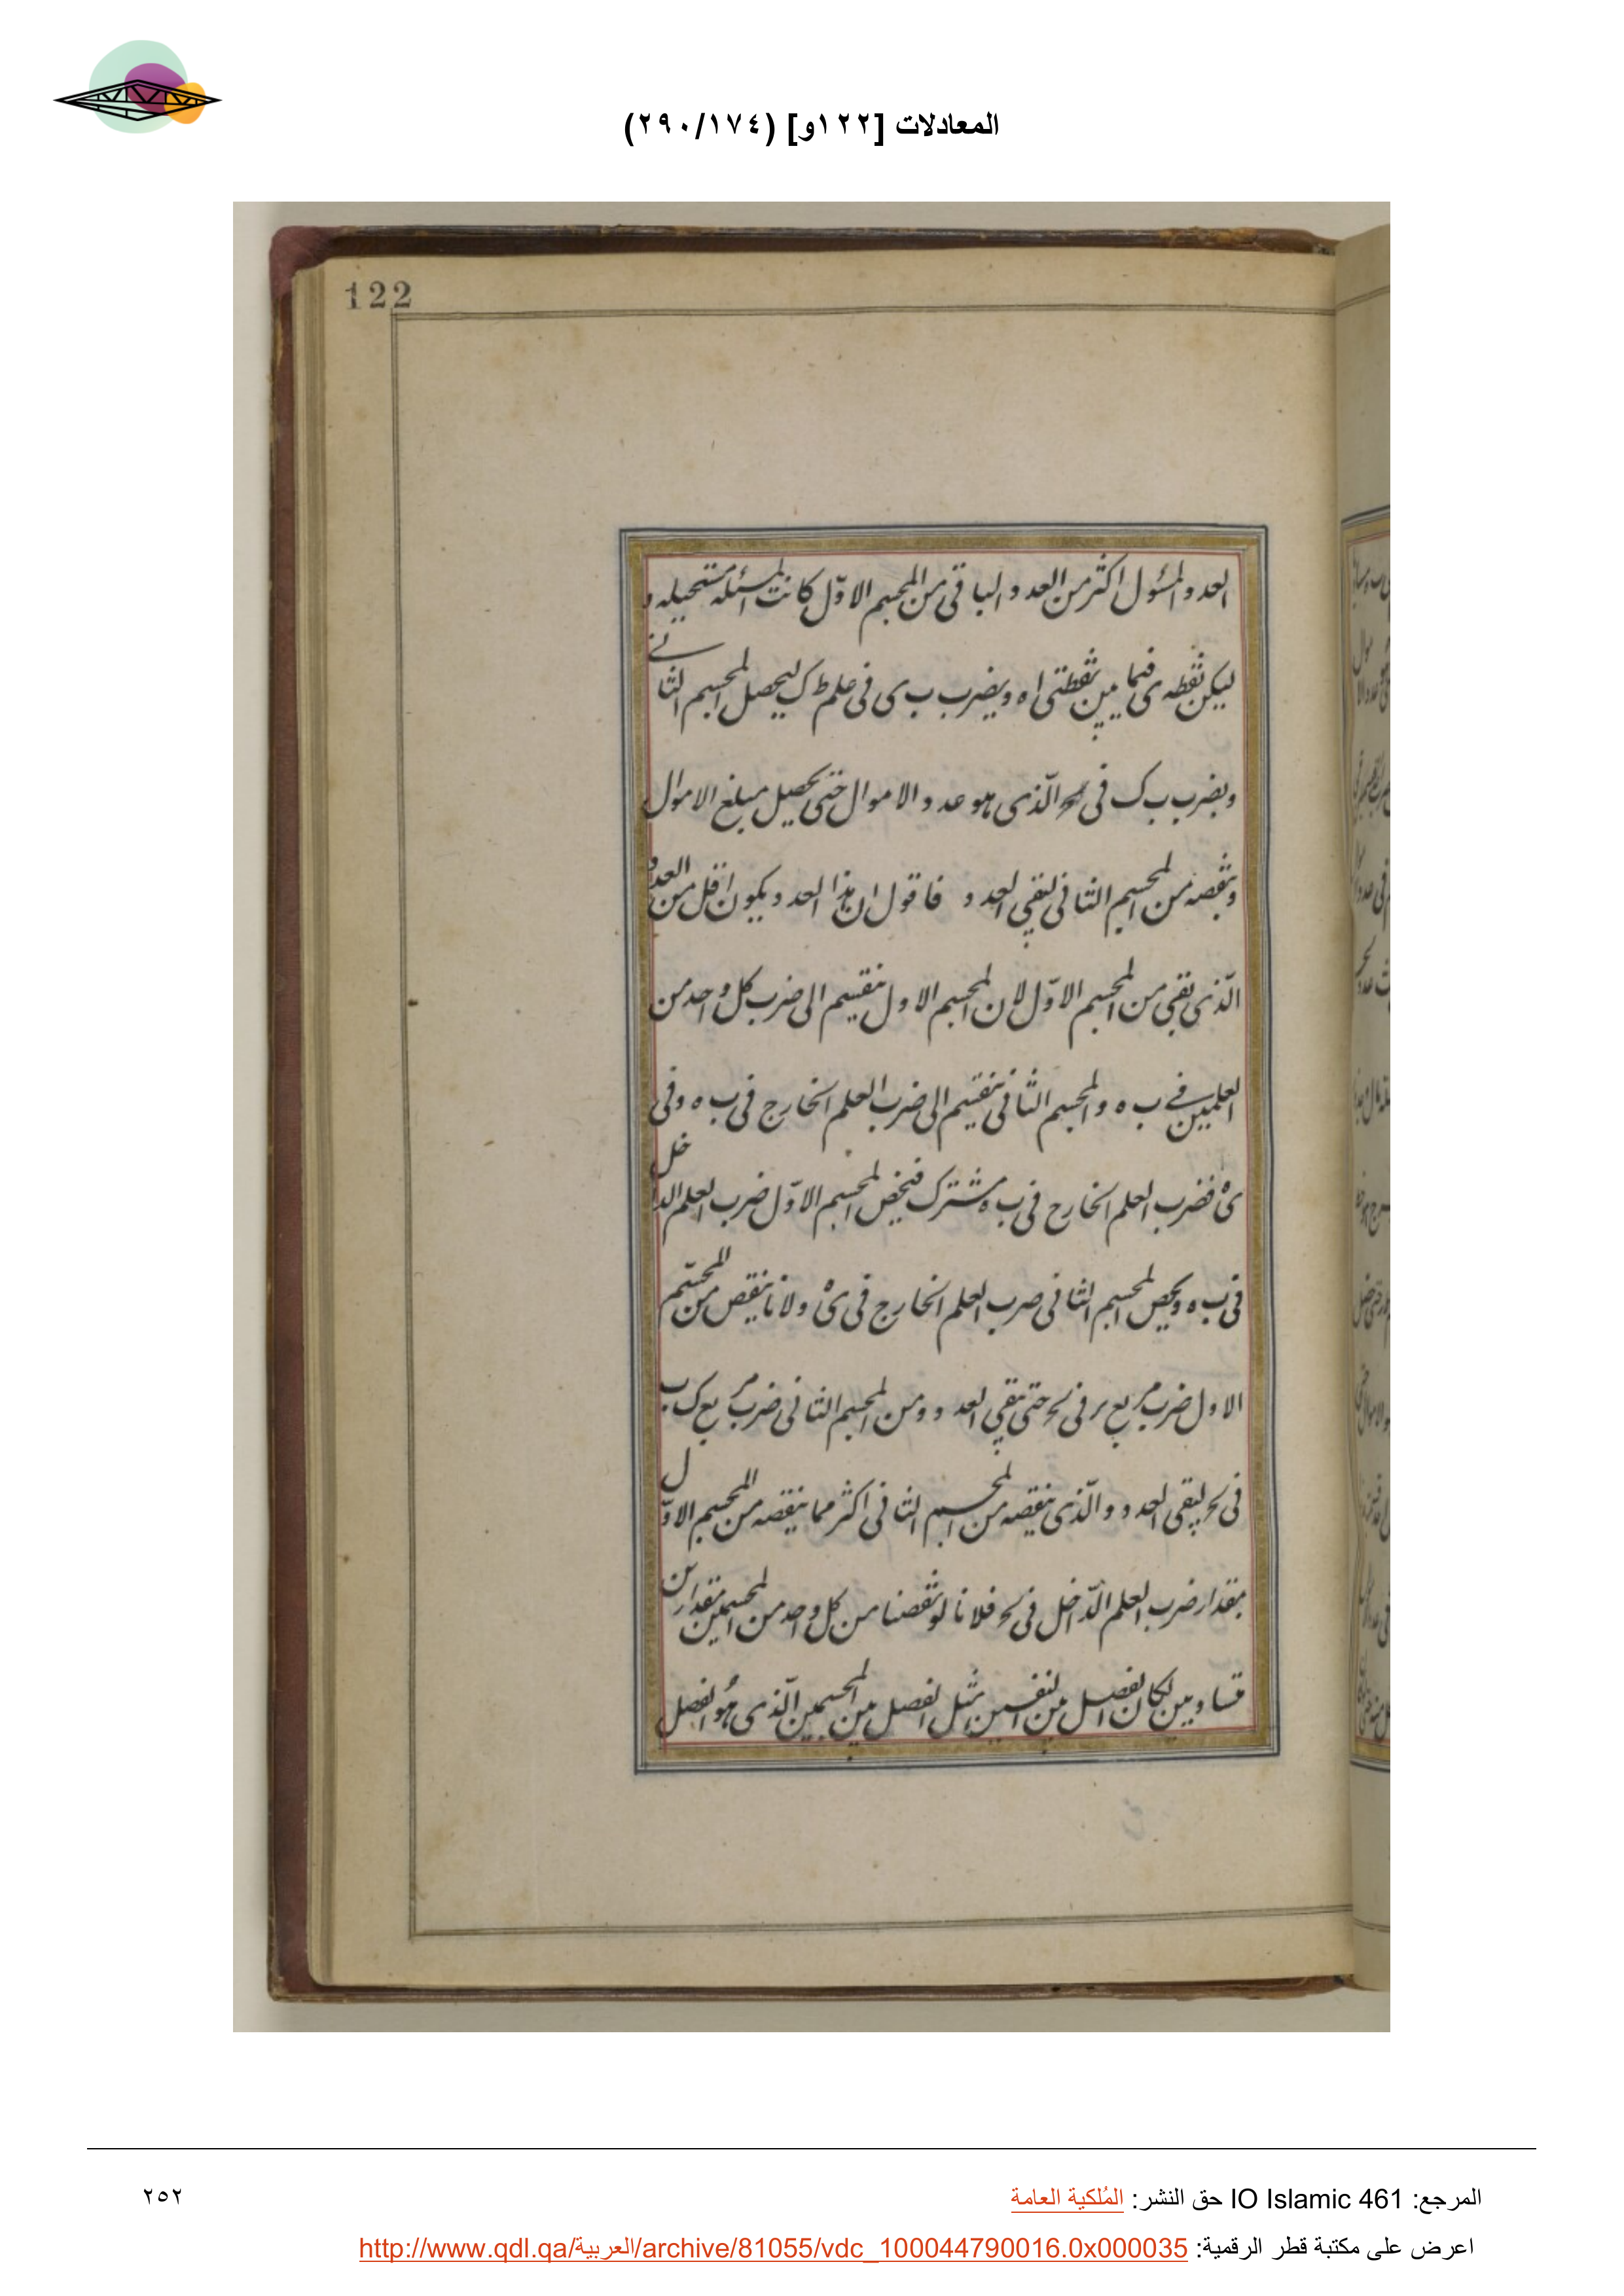 المعادلات [١٢٢و] (٢٩٠/١٧٤)
122
العدد المسئول اكثر من العدد الباقى من المجسم الاوّل كانت المسئله مستحيله و
ليكن نقطه ى فيما بين نقطتى ا ه ويضرب ب ى فى علم ط ك ليحصل المجسم الثانے
ويضرب ب ك فى الّذى هو عدد الاموال حتى يحصل مبلغ الاموال
وينقصه من المجسم الثانى ليبقى العدد فاقول ان هذا العدد يكون اقل من العدد
الّذى بقى من المجسم الاوّل لان المجسم الاول ينقسم الى ضرب كل واحد من
العلمين فے ب ه والمجسم الثانى ينقسم الى ضرب العلم الخارج فى ب ه وفى
ى ه فضرب العلم الخارج فى ب ه مشترك فيخص المجسم الاوّل ضرب العلم الداخل
فى ب ه ويخص المجسم الثانى ضرب العلم الخارج فى ى ه ولانا ينقص من المجسّم
الاول ضرب مربع فى حتى يبقى العدد ومن المجسم الثانى ضرب مربع ك ب
فى ليبقى العدد والّذى ينقصه من المجسم الثانى اكثر مما ينقصه من المجسم الاوّل
بمقدار ضرب العلم الدّاخل فى فلانا لو نقصنا من كل واحد من المجسمين مقدارين
متساويين لكان الفضل بين النفسين مثل الفضل بين المجسمين الّذى هُو الفضل
المرجع: IO Islamic 461 حق النشر: المُلكية العامة
٢٥٢
اعرض على مكتبة قطر الرقمية: http://www.qdl.qa/العربية/archive/81055/vdc_100044790016.0x000035